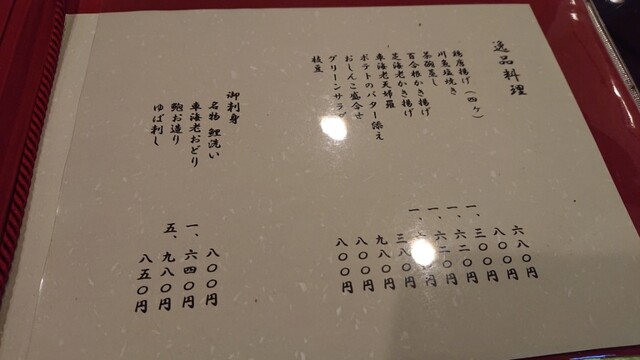 逸品料理
鶏唐揚げ(四ケ) 六八〇円
川魚塩焼き 八〇〇円
茶碗蒸し 一、三〇〇円
百合根かき揚げ 一、六二〇円
芝海老かき揚げ 一、六二〇円
車海老天婦羅
ポテトのバター添え
おしんこ盛合せ 九八〇円
グリーンサラダ 八〇〇円
枝豆 八〇〇円
御刺身
名物 鯉洗い 八〇〇円
車海老おどり 一、六四〇円
鮑お造り 五、九八〇円
ゆば刺し 八五〇円